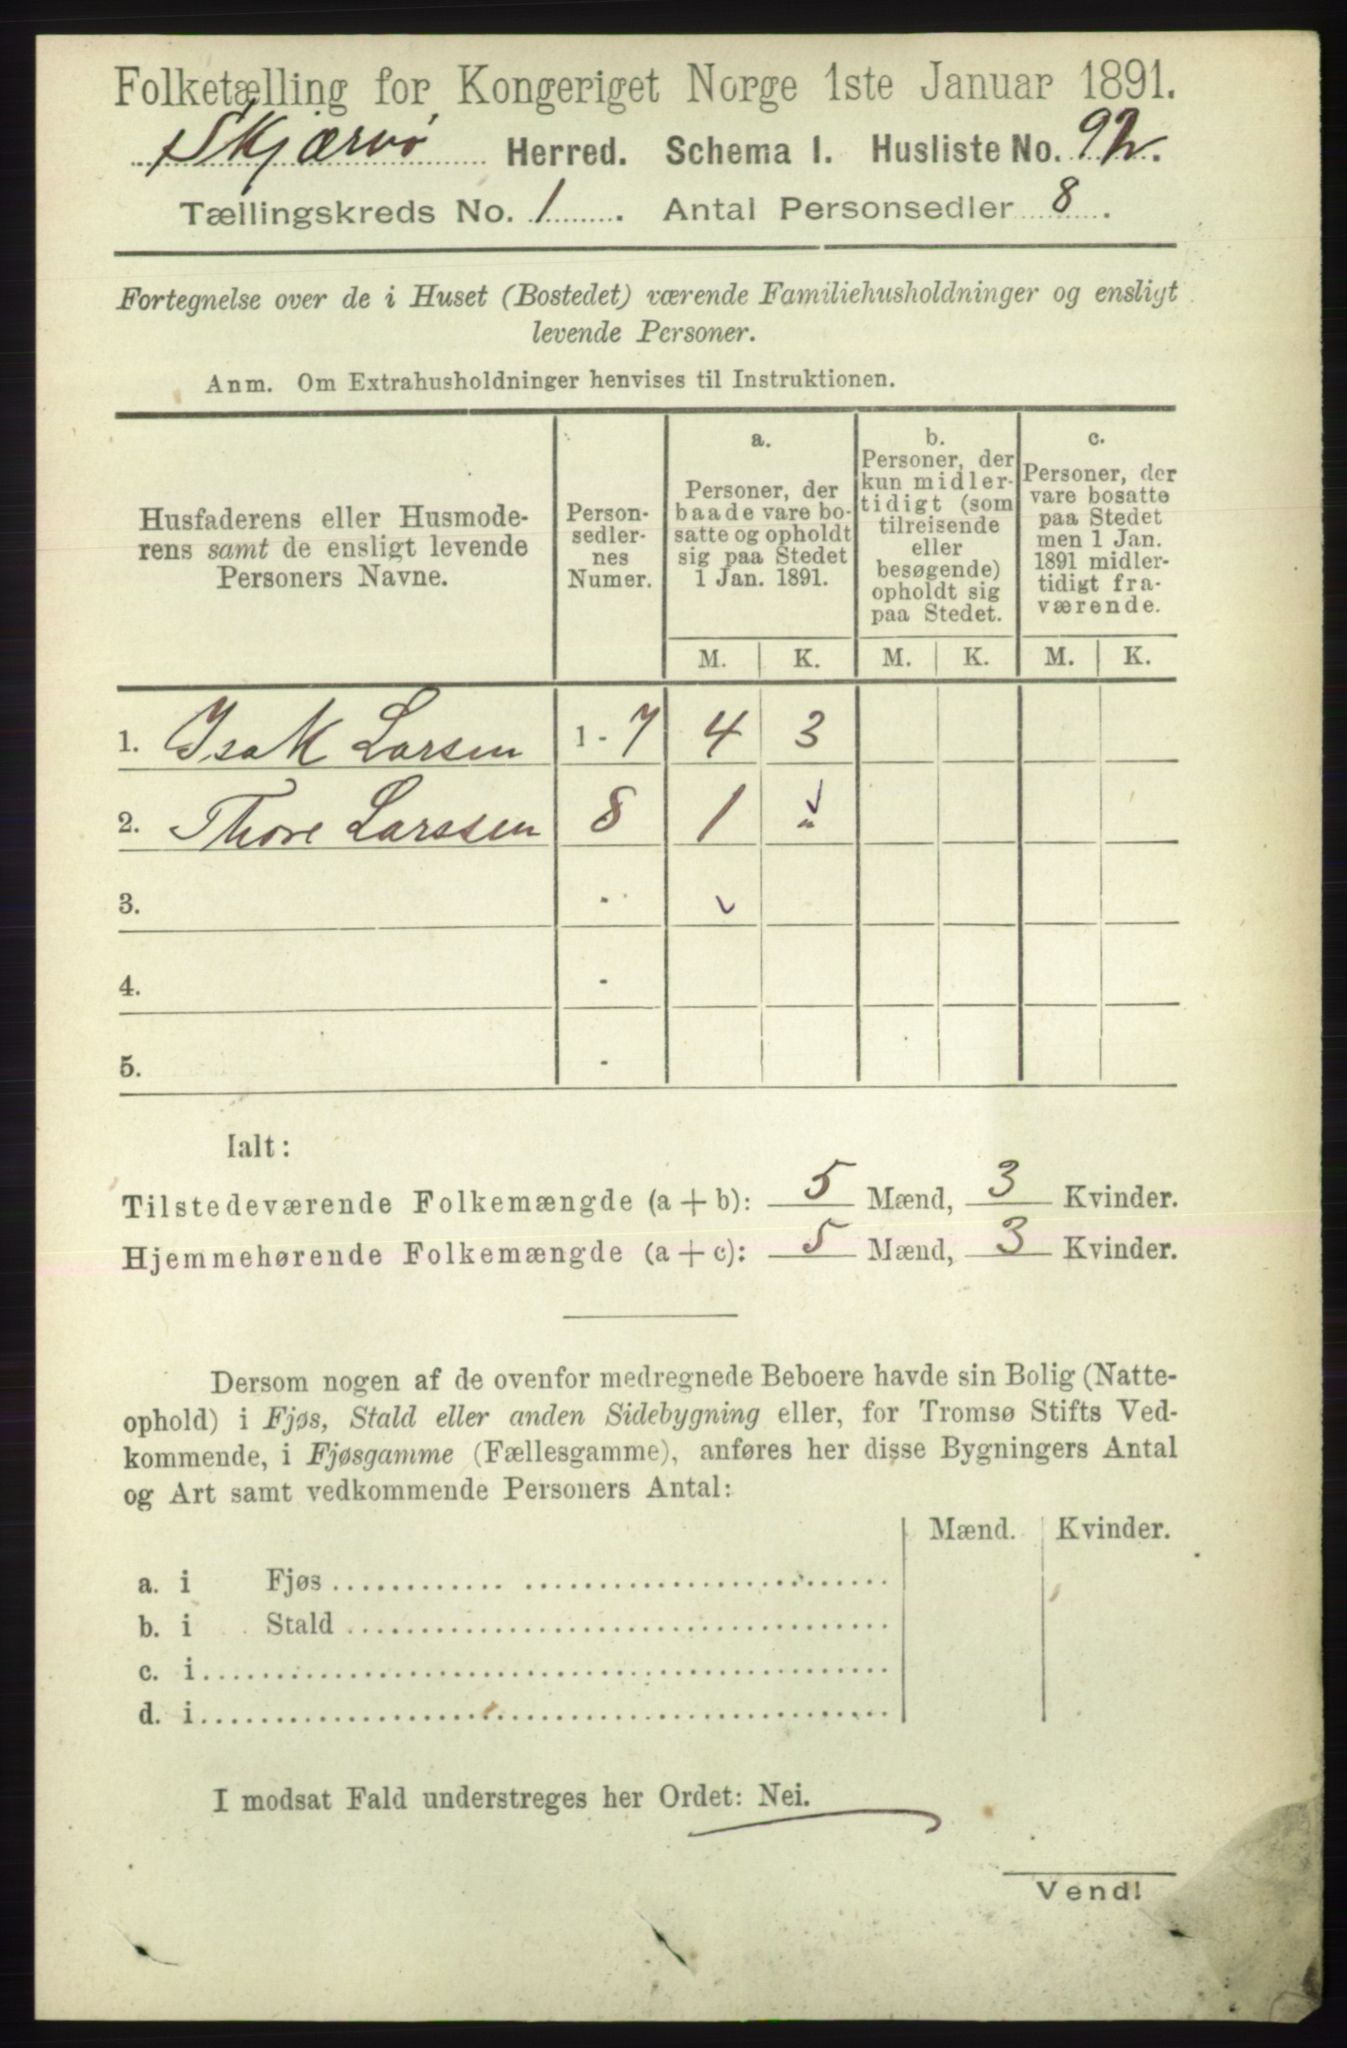 Folketælling for Kongeriget Norge 1ste Januar 1891.
Skjærvø Herred. Schema I. Husliste No. 92.
Tællingskreds No. 1. Antal Personsedler 8.
Fortegnelse over de i Huset (Bostedet) værende Familiehusholdninger og ensligt
levende Personer.
Anm. Om Extrahusholdninger henvises til Instruktionen.
Husfaderens eller Husmode-
rens samt de ensligt levende
Personers Navne.
Person-
sedler-
nes
Numer.
a.
Personer, der
baade vare bo-
satte og opholdt
sig paa Stedet
1 Jan. 1891.
b.
Personer, der
kun midler-
tidigt (som
tilreisende
eller
besøgende)
opholdt sig
paa Stedet.
c.
Personer, der
vare bosatte
paa Stedet
men 1 Jan.
1891 midler-
tidigt fra-
værende.
M. K. M. K. M. K.
1. Isak Larsen 1 - 7 4 3
2. Thore Larssen 8 1 "
3. -
4. -
5. -
Ialt:
Tilstedeværende Folkemængde (a + b): 5 Mænd, 3 Kvinder.
Hjemmehørende Folkemængde (a + c): 5 Mænd, 3 Kvinder.
Dersom nogen af de ovenfor medregnede Beboere havde sin Bolig (Natte-
ophold) i Fjøs, Stald eller anden Sidebygning eller, for Tromsø Stifts Ved-
kommende, i Fjøsgamme (Fællesgamme), anføres her disse Bygningers Antal
og Art samt vedkommende Personers Antal:
Mænd. Kvinder.
a. i Fjøs
b. i Stald
c. i
d. i
I modsat Fald understreges her Ordet: Nei.
Vend!